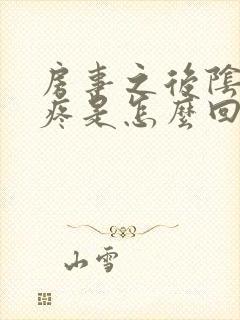 房事之後陰
疼是怎麼回
山雪